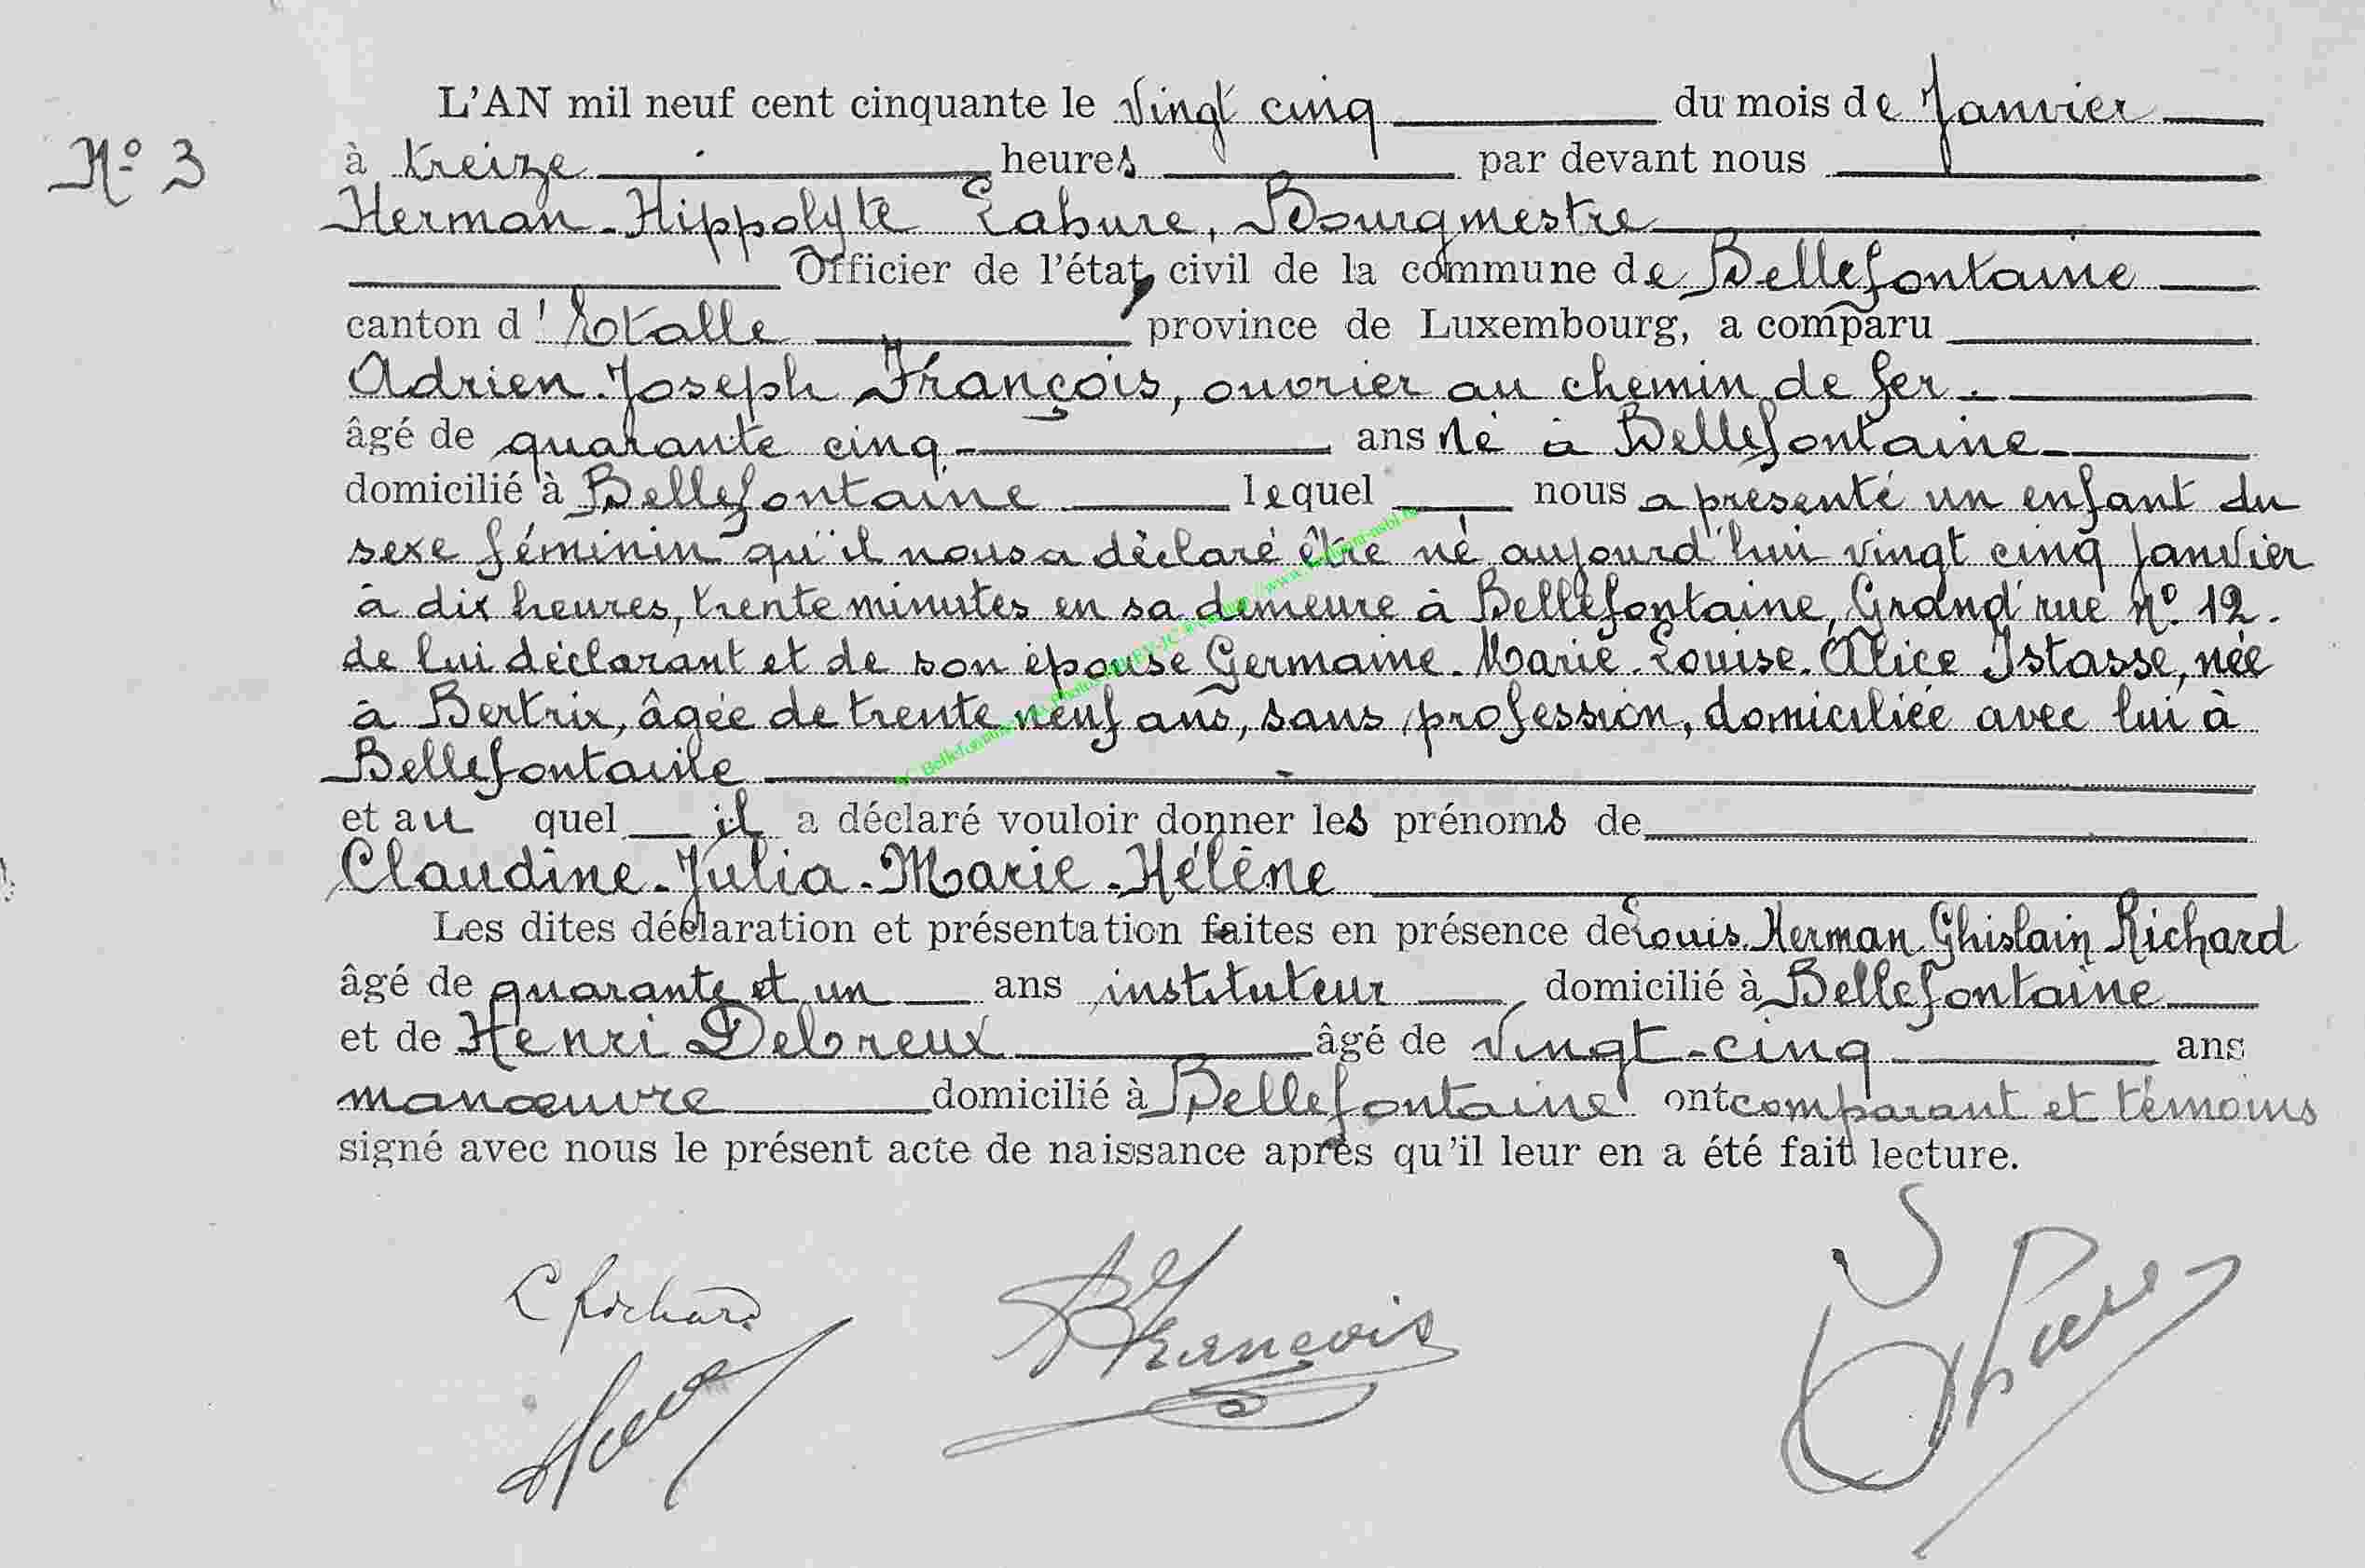 N° 3
L'AN mil neuf cent cinquante le vingt cinq du mois de Janvier
à treize heures par devant nous
Herman-Hippolyte Lahure, Bourgmestre
Officier de l'état civil de la commune de Bellefontaine
canton d'Etalle province de Luxembourg, a comparu
Adrien-Joseph François, ouvrier au chemin de fer.
âgé de quarante cinq ans né à Bellefontaine
domicilié à Bellefontaine lequel nous a présenté un enfant du
sexe féminin qu'il nous a déclaré être né aujourd'hui vingt cinq Janvier
à dix heures, trente minutes en sa demeure à Bellefontaine, Grand'rue n° 12.
de lui déclarant et de son épouse Germaine-Marie-Louise-Alice Istasse, née
à Bertrix, âgée de trente neuf ans, sans profession, domiciliée avec lui à
Bellefontaine
et au quel il a déclaré vouloir donner les prénoms de
Claudine-Julia-Marie-Hélène
Les dites déclaration et présentation faites en présence de Louis-Herman-Ghislain Richard
âgé de quarante et un ans instituteur domicilié à Bellefontaine
et de Henri Debreux âgé de vingt-cinq ans
manœuvre domicilié à Bellefontaine ont comparant et témoins
signé avec nous le présent acte de naissance après qu'il leur en a été fait lecture.
L Richard
A François